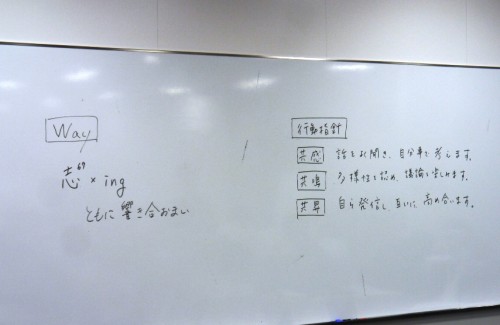 Way
志 × ing
ともに響き合おまい
行動指針
共感 話をよく聞き、自分事で考えます。
共鳴 多様性を認め、議論を楽しみます。
共昇 自ら発信し、互いに高め合います。